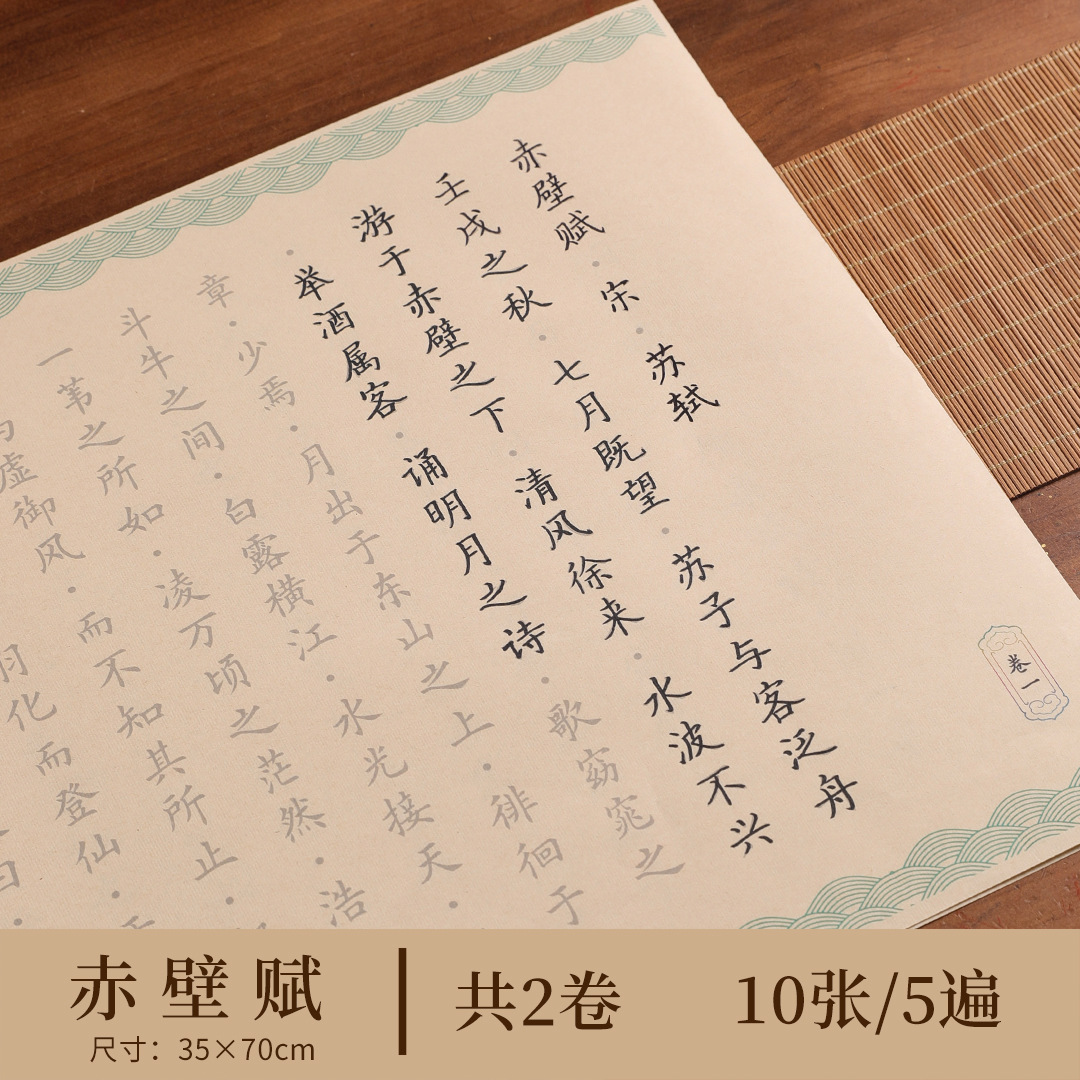 赤壁赋·宋·苏轼
壬戌之秋·七月既望·苏子与客泛舟
游于赤壁之下·清风徐来·水波不兴
·举酒属客·诵明月之诗·歌窈窕之
章·少焉·月出于东山之上·徘徊于
斗牛之间·白露横江·水光接天·
一苇之所如·凌万顷之茫然·浩
虚御风·而不知其所止·
羽化而登仙·
卷一
赤壁赋
尺寸：35×70cm
共2卷
10张/5遍